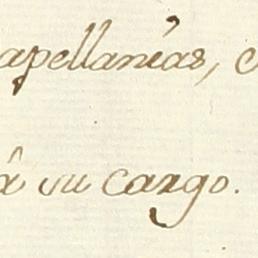 apellanías, c
à su cargo.